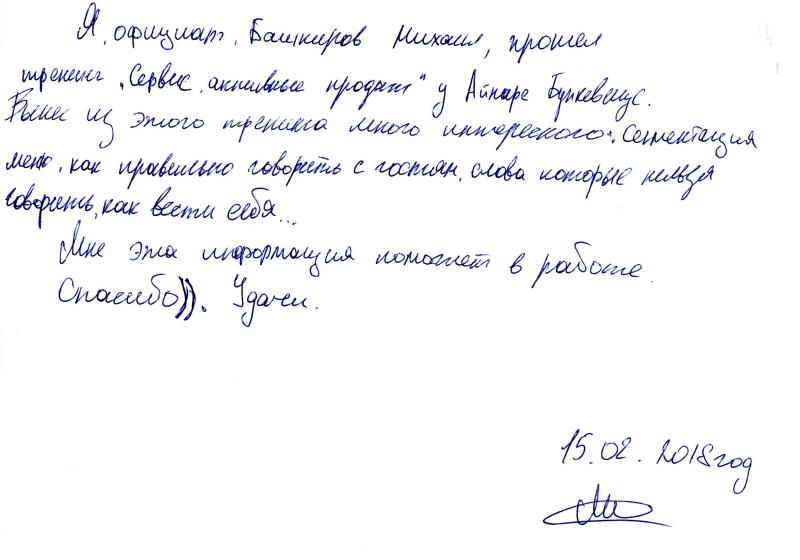 Я, официант, Башкиров Михаил, прошел
тренинг „Сервис, активные продажи" у Айнаре Бункевичус.
Вынес из этого тренинга много интересного: Сегментация
меню, как правильно говорить с гостям, слова которые нельзя
говорить, как вести себя...
Мне эта информация поможет в работе.
Спасибо)). Удачи.
15.02.2018год